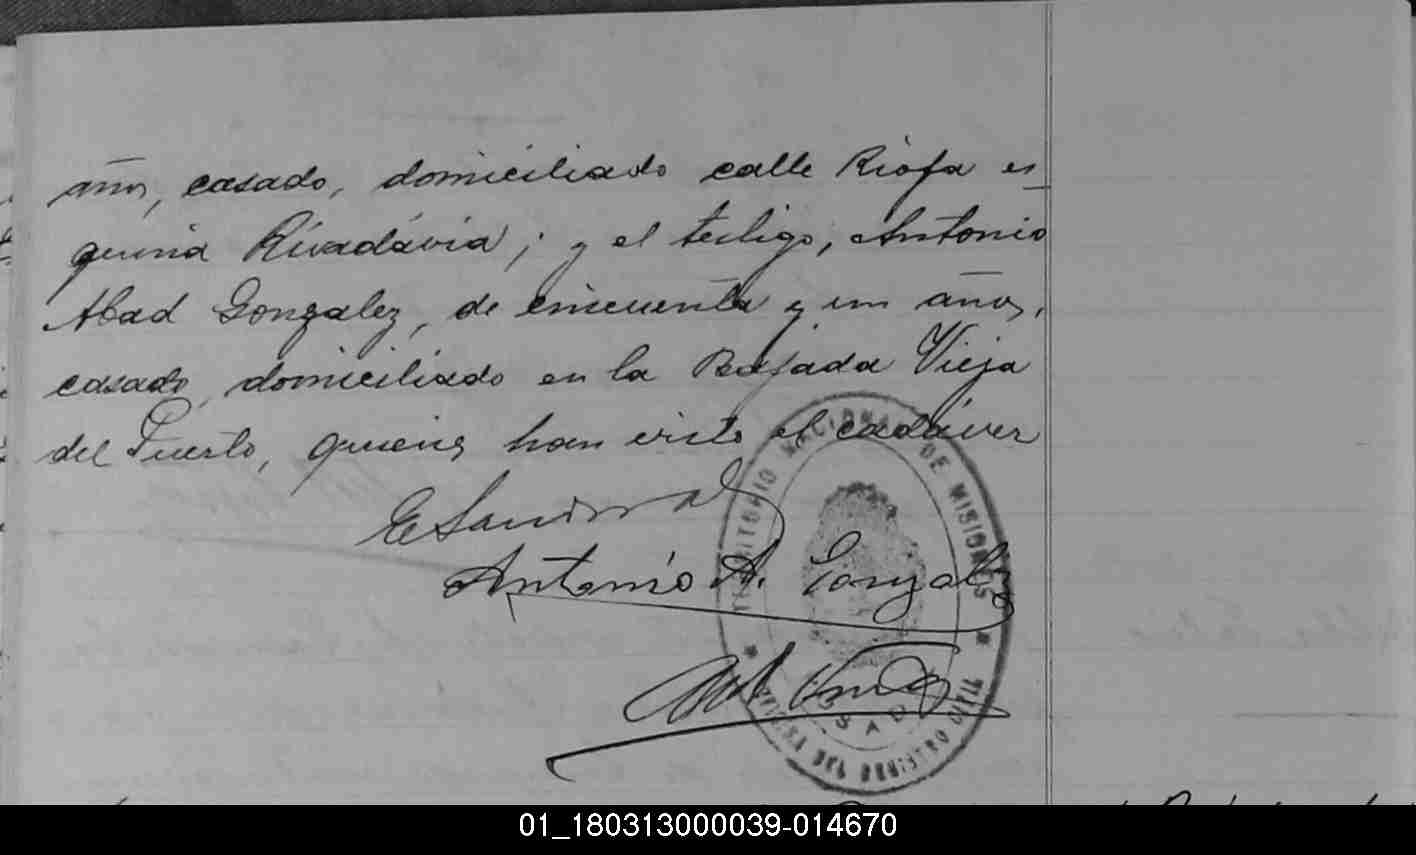 años, casado, domiciliado calle Rioja es
quina Rivadávia; y el testigo, Antonio
Abad Gonzalez, de cincuenta y un años,
casado, domiciliado en la Bajada Vieja
del Puerto, quienes han visto el cadáver
E Sandoval
Antonio A. Gonzalez
TERRITORIO NACIONAL DE MISIONES
REGISTRO CIVIL
01_180313000039-014670